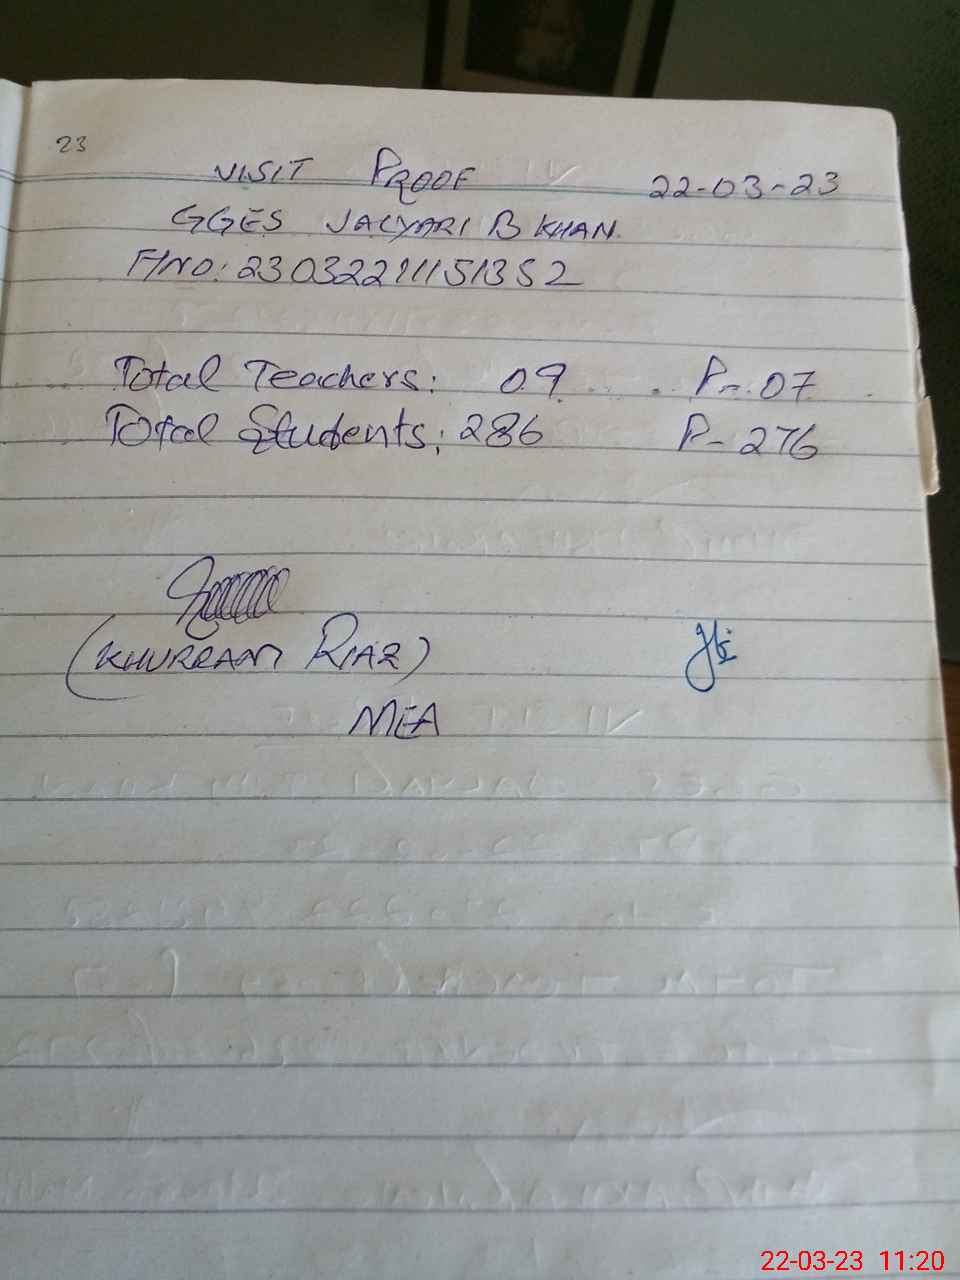 23
VISIT PROOF 22-03-23
GGES JALYARI B KHAN.
F/NO: 23032211151352
Total Teachers: 09 P- 07
Total Students: 286 P- 276
(KHURRAM RIAZ)
MEA
22-03-23 11:20